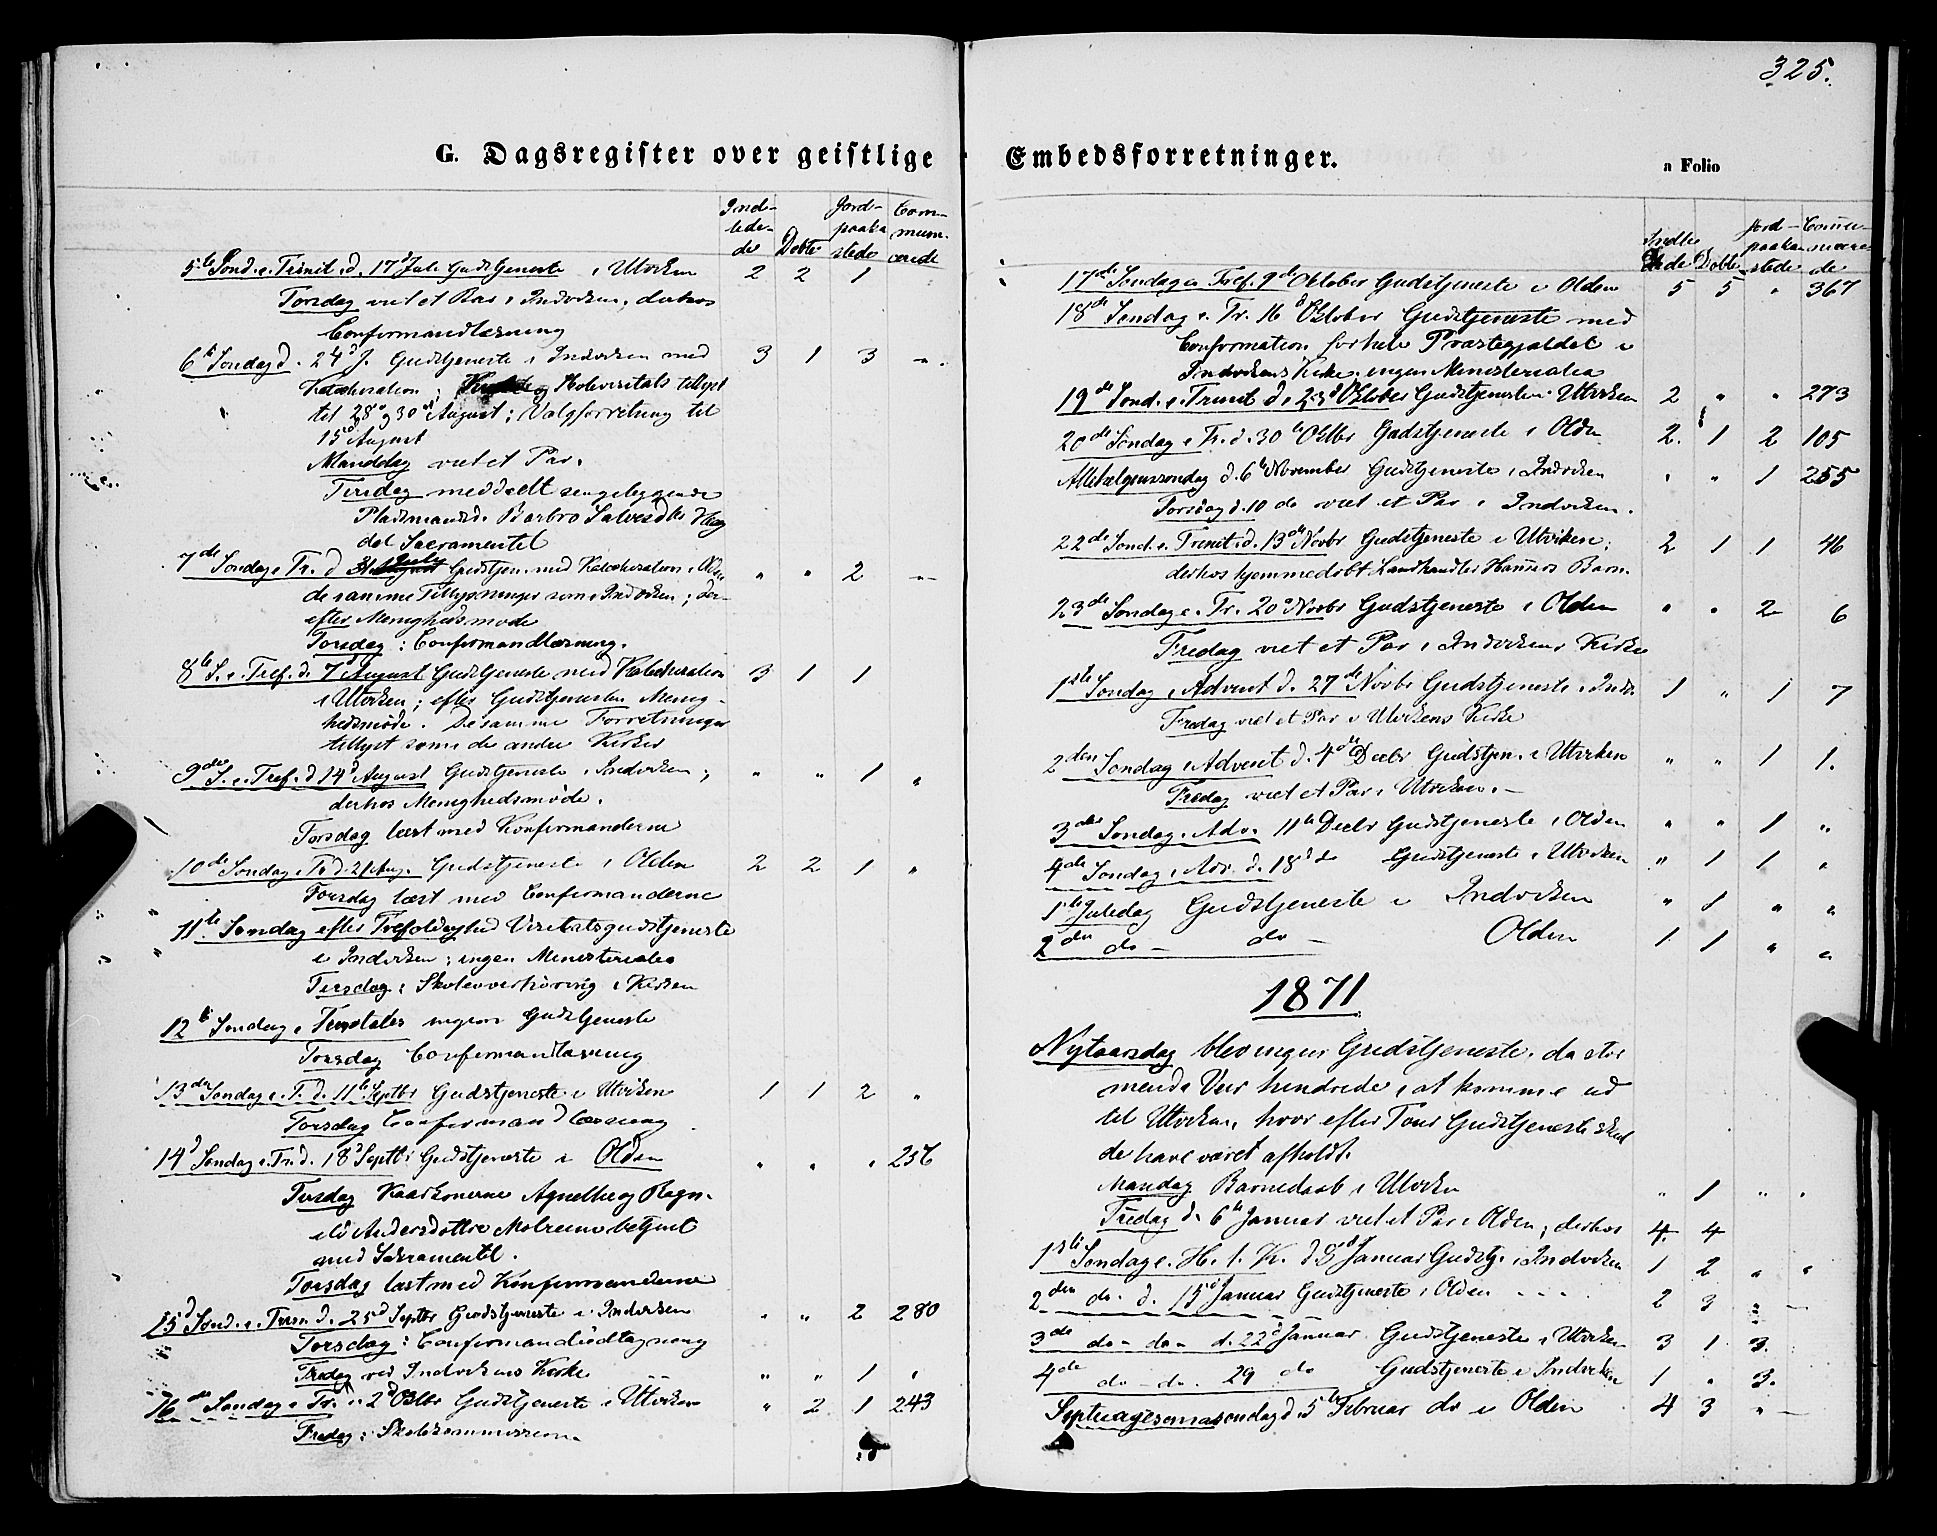 325.
G. Dagsregister over geistlige Embedsforretninger.
a Folio
Indledede Døbte Jordpaakastede Communicerede
5te Sønd. e. Trinit. d. 17d Juli Gudstjeneste i Utviken 2 2 1
Torsdag viet et Par i Indviken, derhos
Confirmandlæsning
6te Søndag d. 24d J. Gudstjeneste i Indviken med 3 1 3 "
Katechisation; Skolevisitats tillyst
til 28d og 30d August; Valgforretning til
15d August
Manddag viet et Par.
Tirsdag meddeelt sengeliggende
Pladsmandsd. Barbro
Sacramentet
7de Søndag e. Tr. d 31 Juli Gudstjen. med Katechisation i Olden " " 2 "
de samme Tillysninger som i Indviken; der-
efter Menighedsmøde
Torsdag: Confirmandlæsning.
8de S. e. Tref. d. 7d August Gudstjeneste med Katechisation 3 1 1
i Utviken; efter Gudstjenesten Menig-
hedsmøde. De samme Forretninger
tillyst som i de andre Kirker
9de S. e. Tref. d 14d August Gudstjeneste i Indviken; " " 1 "
derhos Menighedsmøde.
Torsdag læst med Konfirmanderne
10de Søndag e. Tr. d. 21 Aug. Gudstjeneste i Olden 2 2 1 "
Torsdag læst med Confirmanderne
11te Søndag efter Trefoldighed Visitatsgudstjeneste
i Indviken; ingen Ministerialia
Tirsdag: Skoleoverhøring i Kirken
12te Søndag e. Trinitatis ingen Gudstjeneste
Torsdag Confirmandlæsning
13de Søndag e. T. d. 11te Septbr Gudstjeneste i Utviken 1 1 2 "
Torsdag Confirmandlæsning
14d Søndag e. Tr. d. 18d Septbr Gudstjeneste i Olden " " " 256
Tirsdag Kaarkonerne og Ragn-
ild Andersdøttre betjent
med Sakramentet.
Torsdag læst med Konfirmanderne
15d Sønd. e. Trin d. 25d Septbr Gudstjeneste i Indviken " " 2 280
Torsdag: Confirmandudtagning
Fredag ved Indvikens Kirke " " 1 "
16de Søndag e. Tr. 2d Oktbr Gudstjeneste i Utviken " 2 1 243
Fredag: Skolekommission.
Indledede Døbte Jordpaakastede Communicerede
17de Søndag e. Tref. 9de Oktober Gudstjeneste i Olden 5 5 " 367
18de Søndag e. Tr. 16d Oktober Gudstjeneste med
Confirmation for hele Præstegjeldet i
Indvikens Kirke. ingen Ministerialia
19de Sønd. e. Trinit. d. 23d Oktober Gudstjeneste i Utviken 2 " " 273
20de Søndag e. Tr. d. 30te Oktbr Gudstjeneste i Olden 2. 1 2 105
Allehelgenssøndag d. 6te November Gudstjeneste i Indviken " " 1 255
Torsdag d. 10 de viet et Par i Indviken.
22de Sønd. e. Trinit. d. 13de Novbr Gudstjeneste i Utviken; 2 1 1 46
derhos hjemmedøbt Landhandler Barn.
23de Søndag e. Tr. 20d Novbr Gudstjeneste i Olden " " 2 6
Fredag viet et Par i Indvikens Kirke
1ste Søndag i Advent d. 27de Novbr Gudstjeneste i Indv. 1 " 1 7
Fredag viet et Par i Utvikens Kirke
2den Søndag i Advent d. 4de Decbr Gudstjen. i Utviken " " 1 1.
Fredag viet et Par i Utviken.
3die Søndag i Adv. 11te Decbr Gudstjeneste i Olden " " 1 "
4de Søndag i Adv. d. 18d do Gudstjeneste i Utviken " 1 1 "
1ste Juledag Gudstjeneste i Indviken " 1 " "
2den do — do — Olden 1 1 " "
1871
Nytaarsdag blev ingen Gudstjeneste, da stor-
mende Veir hindrede i at komme ud
til Utviken, hvor efter Tour Gudstjeneste skul-
de have været afholdt.
Mandag Barnedaab i Utviken " 1 " "
Fredag d. 6te Januar viet et Par i Olden; derhos 4. 4
1ste Søndag e. H. 3. K. d 8d Januar Gudstj. i Indviken 1 2 " "
2den do. d. 15d Januar Gudstjeneste i Olden 2 3 " —
3die do — do — d. 22d Januar Gudstjeneste i Utviken 3 1 3.
4de do — do. 29 do Gudstjeneste i Indviken 1 " 3.
Septuagesimasøndag d. 5te Februar do i Olden 4 3 " —